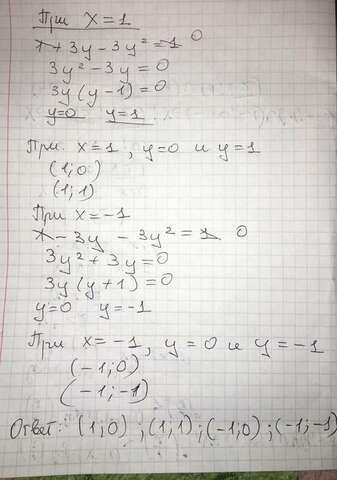 При x=1
1+3y-3y²=1 0
3y²-3y=0
3y(y-1)=0
y=0 y=1
При x=1, y=0 и y=1
(1;0)
(1;1)
При x=-1
1-3y-3y²=1 0
3y²+3y=0
3y(y+1)=0
y=0 y=-1
При x=-1, y=0 и y=-1
(-1;0)
(-1;-1)
Ответ: (1;0);(1;1);(-1;0);(-1;-1)